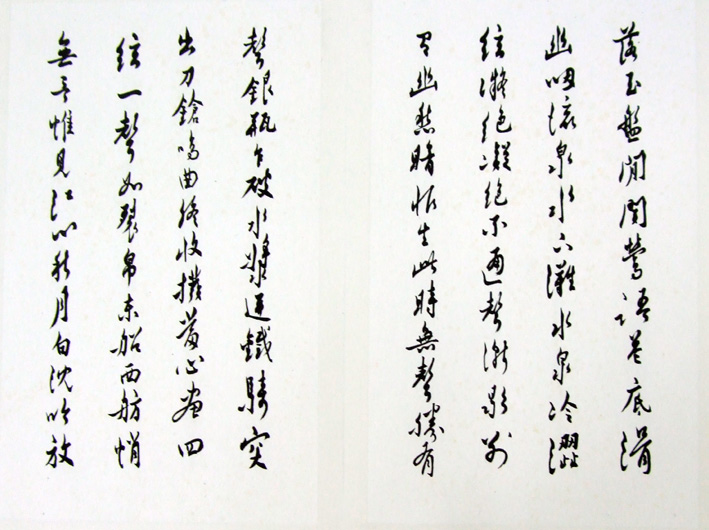 落玉盤間関鶯語花底滑
幽咽泉水下灘水泉冷澀
絃凝絶凝絶不通聲漸歇別
有幽愁暗恨生此時無聲勝有
聲銀瓶乍破水漿迸鐵騎突
出刀鎗鳴曲終收撥當心畫四
絃一聲如裂帛東船西舫悄
無言惟見江心秋月白沈吟放